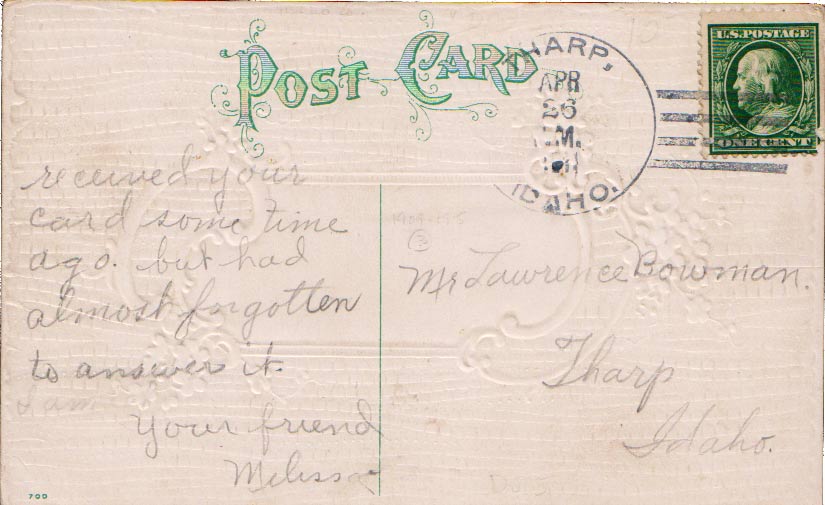 POST CARD
THARP,
APR
26
.M.
1911
IDAHO.
U.S. POSTAGE
ONE CENT
received your
card some time
ago. but had
almost forgotten
to answer it.
I am
Your friend
Melissa
Mr Lawrence Bowman.
Tharp
Idaho.
700